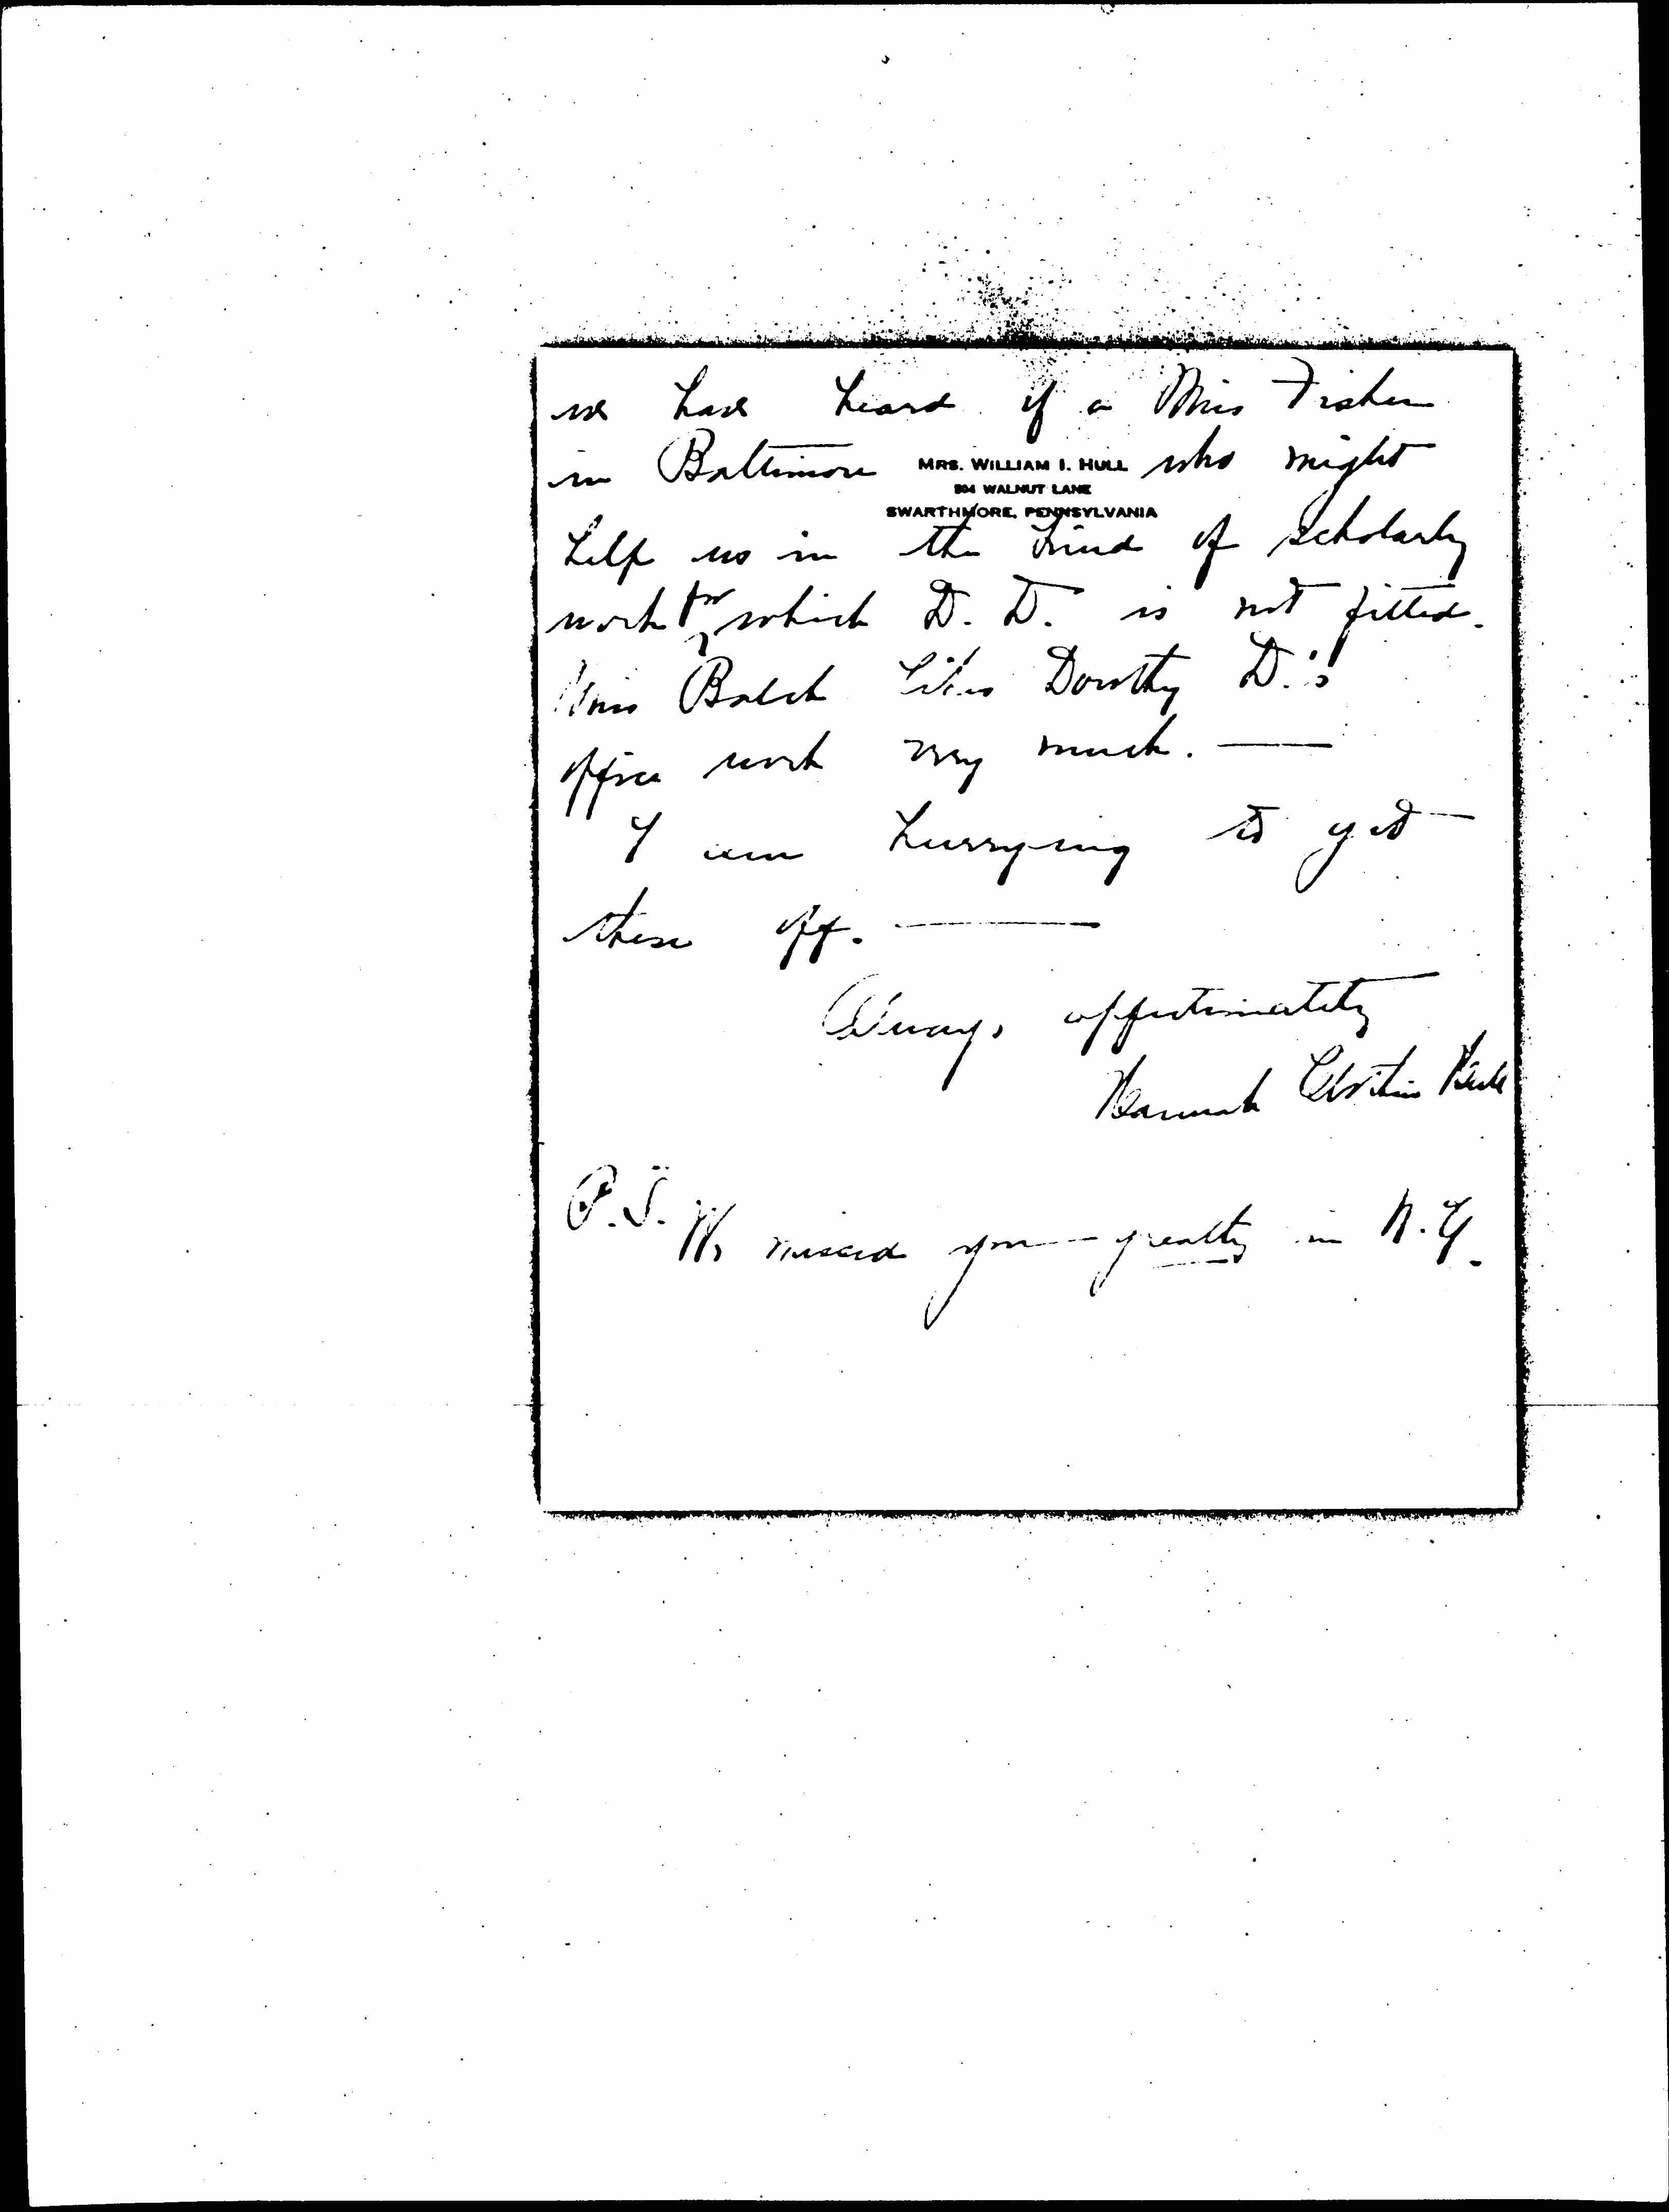 we have heard of a Miss Fisher
in Baltimore who might
MRS. WILLIAM I. HULL
504 WALNUT LANE
SWARTHMORE, PENNSYLVANIA
help us in the kind of scholarly
work for which D. D. is not fitted.
Miss Balch likes Dorothy D.'s
office work very much. —
I am hurrying to get
these off. —
Always affectionately
Hannah Clothier Hull
P.S. We missed you - greatly in N.Y.